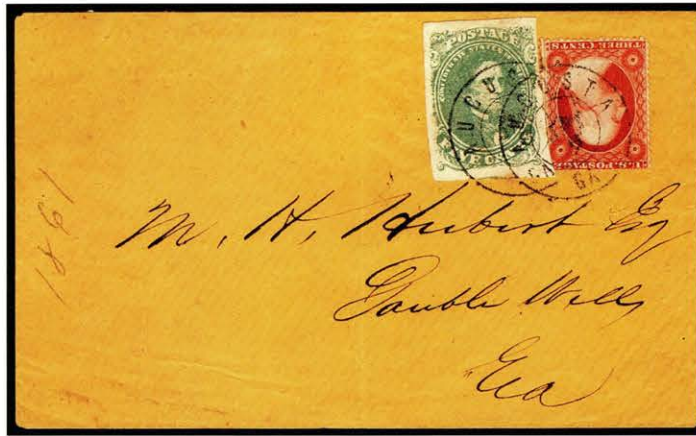 POSTAGE
CONFEDERATE STATES
FIVE CENTS
U.S. POSTAGE
THREE CENTS
AUGUSTA
GA
AUGUSTA
GA
1861
M. H. Hubert Esq
Double Wells
Ga